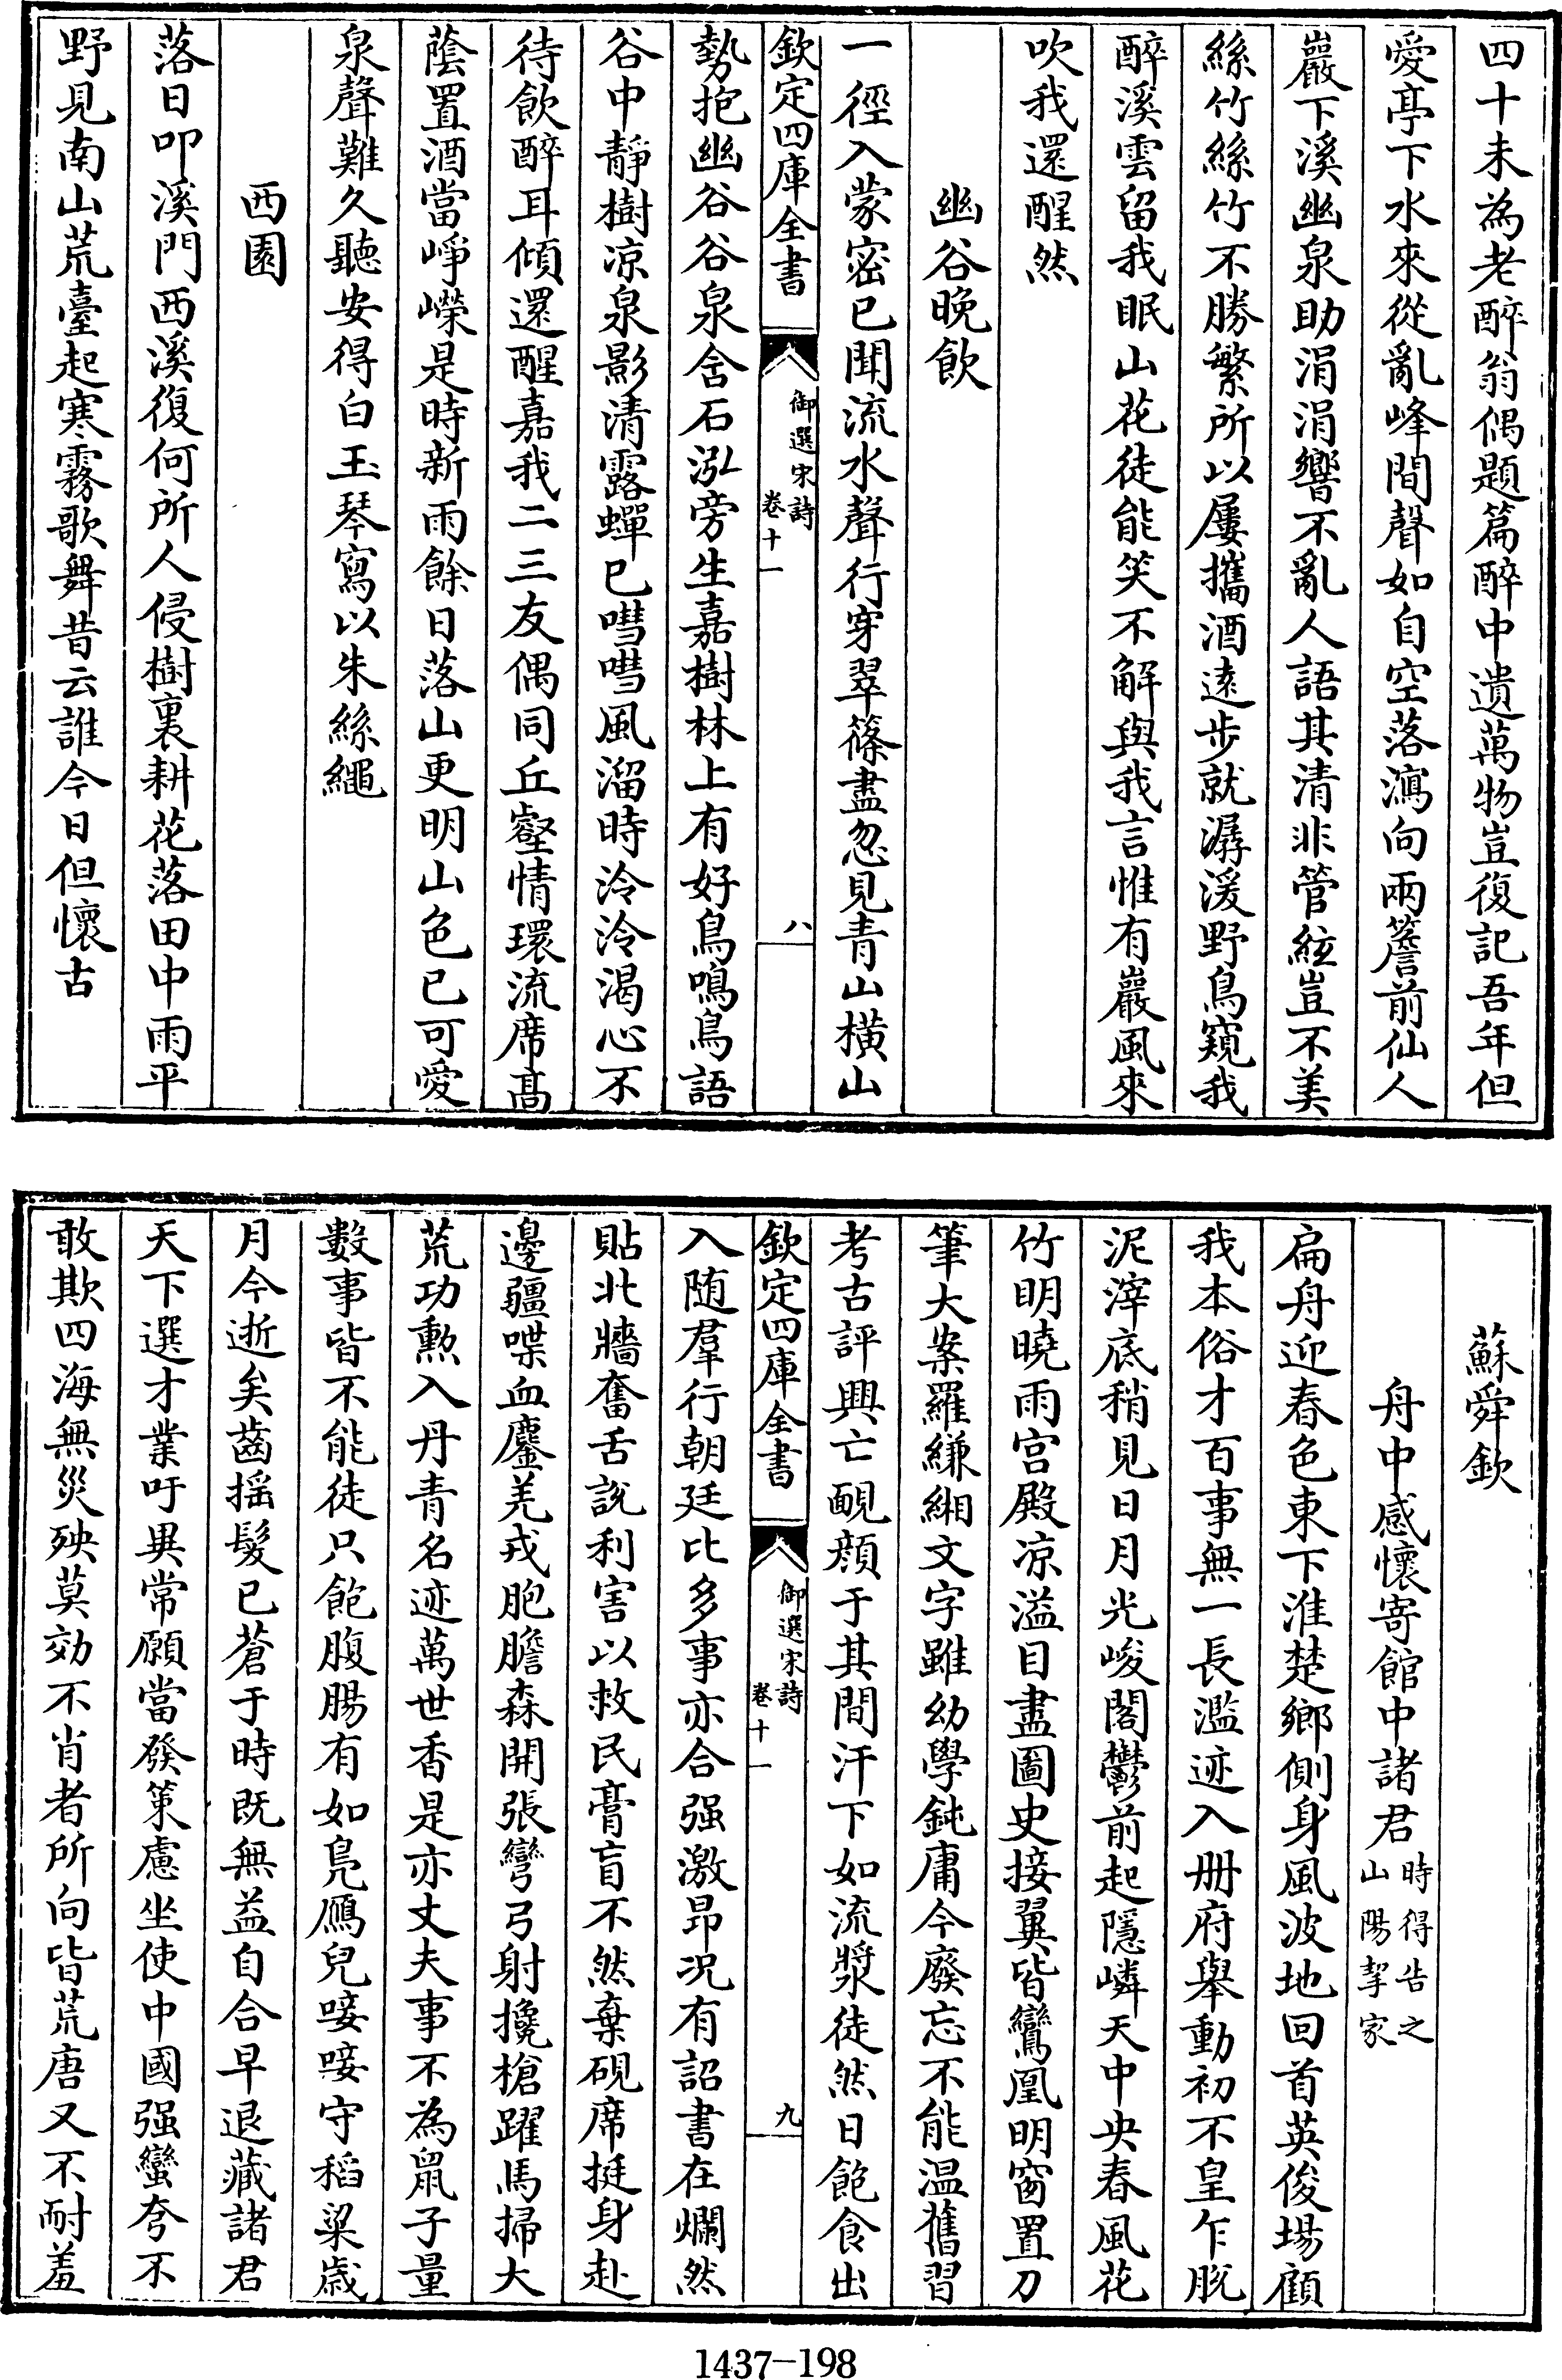 四十未為老醉翁偶題篇醉中遺萬物豈復記吾年但
愛亭下水來從亂峰間聲如自空落瀉向兩簷前仙人
巖下溪幽泉助涓涓響不亂人語其清非管絃豈不美
絲竹絲竹不勝繁所以屢攜酒遠步就潺湲野鳥窺我
醉溪雲留我眠山花徒能笑不解與我言惟有巖風來
吹我還醒然
幽谷晚飲
一徑入蒙密已聞流水聲行穿翠篠盡忽見青山橫山
欽定四庫全書
御選宋詩
卷十一
八
勢抱幽谷谷泉含石泓旁生嘉樹林上有好鳥鳴鳥語
谷中靜樹凉泉影清露蟬已嘒嘒風溜時泠泠渴心不
待飲醉耳傾還醒嘉我二三友偶同丘壑情環流席高
蔭置酒當崢嶸是時新雨餘日落山更明山色已可愛
泉聲難久聽安得白玉琴寫以朱絲繩
西園
落日叩溪門西溪復何所人侵樹裏耕花落田中雨平
野見南山荒臺起寒霧歌舞昔云誰今日但懷古
蘇舜欽
舟中感懷寄館中諸君時得告之
山陽挈家
扁舟迎春色東下淮楚鄉側身風波地回首英俊場顧
我本俗才百事無一長濫迹入册府舉動初不皇乍脫
泥滓底稍見日月光峻閣鬱前起隱嶙天中央春風花
竹明曉雨宫殿凉溢目盡圖史接翼皆鸞凰明窗置刀
筆大案羅縑緗文字雖幼學鈍庸今廢忘不能温舊習
考古評興亡靦顔于其間汗下如流漿徒然日飽食出
欽定四庫全書
御選宋詩
卷十一
九
入随羣行朝廷比多事亦合强激昻况有詔書在爛然
貼北牆奮舌說利害以救民膏肓不然棄硯席挺身赴
邊疆喋血鏖羌戎胞膽森開張彎弓射攙槍躍馬掃大
荒功勲入丹青名迹萬世香是亦丈夫事不為鼠子量
數事皆不能徒只飽腹腸有如鳬鴈兒唼唼守稻粱歲
月今逝矣齒揺髮已蒼于時既無益自合早退藏諸君
天下選才業吁異常願當發策慮坐使中國强蠻夸不
敢欺四海無災殃莫効不肖者所向皆荒唐又不耐羞
1437-198